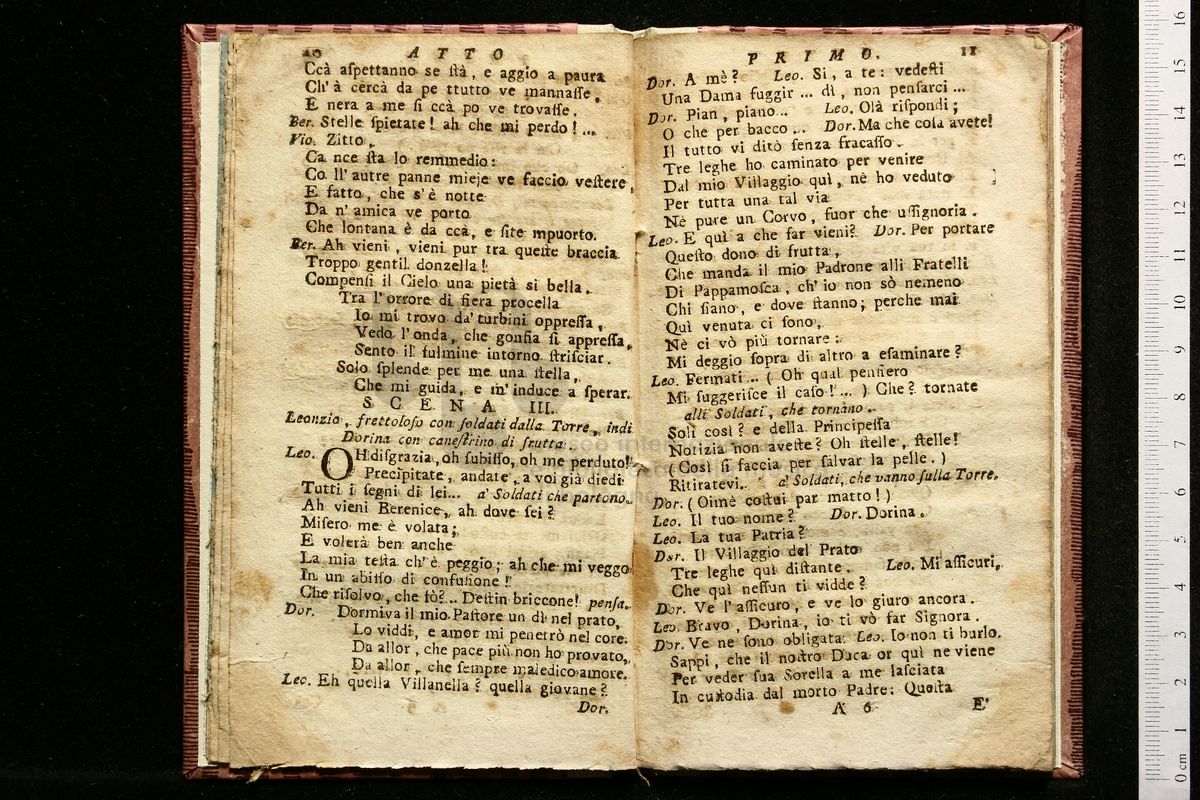 10 ATTO
Ccà aſpettanno se ſtà, e aggio a paura
Ch'à cercà da pe ttutto ve mannaſſe,
E nera a me ſi ccà po ve trovaſſe.
Ber. Stelle ſpietate! ah che mi perdo! ...
Vio. Zitto,
Ca nce ſta lo remmedio:
Co ll'autre panne mieje ve faccio veſtere,
E fatto, che s'è notte
Da n'amica ve porto
Che lontana è da ccà, e ſite mpuorto.
Ber. Ah vieni, vieni pur tra queſte braccia
Troppo gentil donzella!
Compenſi il Cielo una pietà sì bella.
Tra l'orrore di fiera procella
Io mi trovo da' turbini oppreſſa,
Vedo l'onda, che gonfia ſi appreſſa,
Sento il fulmine intorno ſtriſciar.
Solo splende per me una ſtella,
Che mi guida, e m'induce a ſperar.
SCENA III.
Leonzio, frettoloſo con ſoldati dalla Torre, indi
Dorina con caneſtrino di frutta.
Leo. OH diſgrazia, oh ſubiſſo, oh me perduto!
Precipitate, andate, a voi già diedi
Tutti i ſegni di lei... a' Soldati che partono.
Ah vieni Berenice, ah dove ſei?
Miſero me è volata;
E volerà ben anche
La mia teſta ch'è peggio; ah che mi veggo
In un abiſſo di confuſione!
Che riſolvo, che fò?.. Deſtin briccone! penſa.
Dor. Dormiva il mio Paſtore un dì nel prato,
Lo viddi, e amor mi penetrò nel core:
Da allor, che pace più non ho provato,
Da allor, che ſempre maledico amore.
Leo. Eh quella Villanella? quella giovane?
Dor.
PRIMO. 11
Dor. A mè? Leo. Si, a te: vedeſti
Una Dama fuggir ... dì, non penſarci ...
Dor. Pian, piano... Leo. Olà riſpondi;
O che per bacco ... Dor. Ma che coſa avete!
Il tutto vi dirò ſenza fracaſſo.
Tre leghe ho caminato per venire
Dal mio Villaggio quì, nè ho veduto
Per tutta una tal via
Nè pure un Corvo, fuor che uſſignoria.
Leo. E quì a che far vieni? Dor. Per portare
Queſto dono di frutta,
Che manda il mio Padrone alli Fratelli
Di Pappamoſca, ch'io non sò nemeno
Chi ſiano, e dove ſtanno; perche mai
Quì venuta ci ſono,
Nè ci vò più tornare:
Mi deggio ſopra di altro a eſaminare?
Leo. Fermati ... ( Oh qual penſiero
Mi ſuggeriſce il caſo! ... ) Che? tornate
alli Soldati, che tornano.
Soli così? e della Principeſſa
Notizia non aveſte? Oh ſtelle, ſtelle!
( Così ſi faccia per ſalvar la pelle. )
Ritiratevi. a' Soldati, che vanno ſulla Torre.
Dor. ( Oimè coſtui par matto! )
Leo. Il tuo nome? Dor. Dorina.
Leo. La tua Patria?
Dor. Il Villaggio del Prato
Tre leghe quì diſtante. Leo. Mi aſſicuri,
Che quì neſſun ti vidde?
Dor. Ve l'aſſicuro, e ve lo giuro ancora.
Leo. Bravo, Dorina, io ti vò far Signora.
Dor. Ve ne ſono obligata. Leo. Io non ti burlo.
Sappi, che il noſtro Duca or quì ne viene
Per veder ſua Sorella a me laſciata
In cuſtodia dal morto Padre: Queſta
A 6 E'